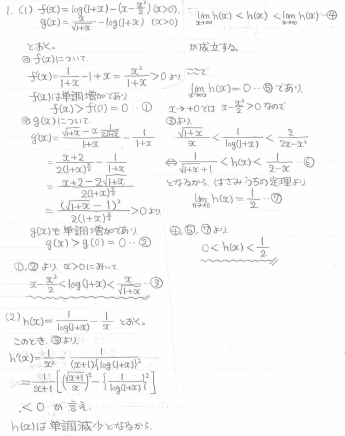 1. (1) f(x)=log(1+x)-(x-x²/2) (x>0),
g(x)=x/√(1+x) - log(1+x) (x>0)
とおく。
◎f(x)について
f'(x)=1/(1+x) -1+x = x²/(1+x) >0 より
f(x)は単調増加であり
f(x)>f(0)=0 …①
◎g(x)について
g'(x)=(√(1+x) - x·1/(2√(1+x)))/(1+x) - 1/(1+x)
= (x+2)/(2(1+x)^(3/2)) - 1/(1+x)
= (x+2-2√(1+x))/(2(1+x)^(3/2))
= (√(1+x) -1)²/(2(1+x)^(3/2)) >0 より
g(x)も単調増加であり
g(x)>g(0)=0 …②
①,②より x>0において
x-x²/2<log(1+x)<x/√(1+x) …③
(2) h(x)=1/log(1+x) - 1/x とおく。
このとき,③より
h'(x)=1/x² - 1/((x+1){log(1+x)}²)
=1/(x+1) [(√(x+1)/x)² - {1/log(1+x)}²]
<0 が言え,
h(x)は単調減少となるから,
lim x→∞ h(x)<h(x)<lim x→+0 h(x) …④
が成立する。
ここで
lim x→∞ h(x)=0 …⑤であり,
x→+0では x-x²/2>0なので
③より,
√(1+x)/x < 1/log(1+x) < 2/(2x-x²)
⇔ 1/(√(x+1)+1) <h(x)< 1/(2-x) …⑥
となるから,はさみうちの定理より
lim x→+0 h(x)=1/2 …⑦
④,⑤,⑦より,
0<h(x)<1/2